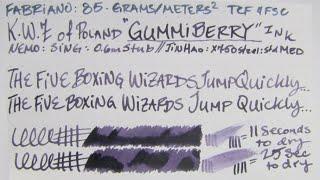 FABRIANO: 85-GRAMS/METERS² TCF & FSC
K.W.Z of POLAND "GUMMIBERRY" INK
NEMO: SING: 0.6mm Stub // JINHAO: X750 steel: std MED
THE FIVE BOXING WIZARDS JUMP QUICKLY...
THE FIVE BOXING WIZARDS JUMP QUICKLY...
= 11 Seconds to dry
= 25 Sec to dry